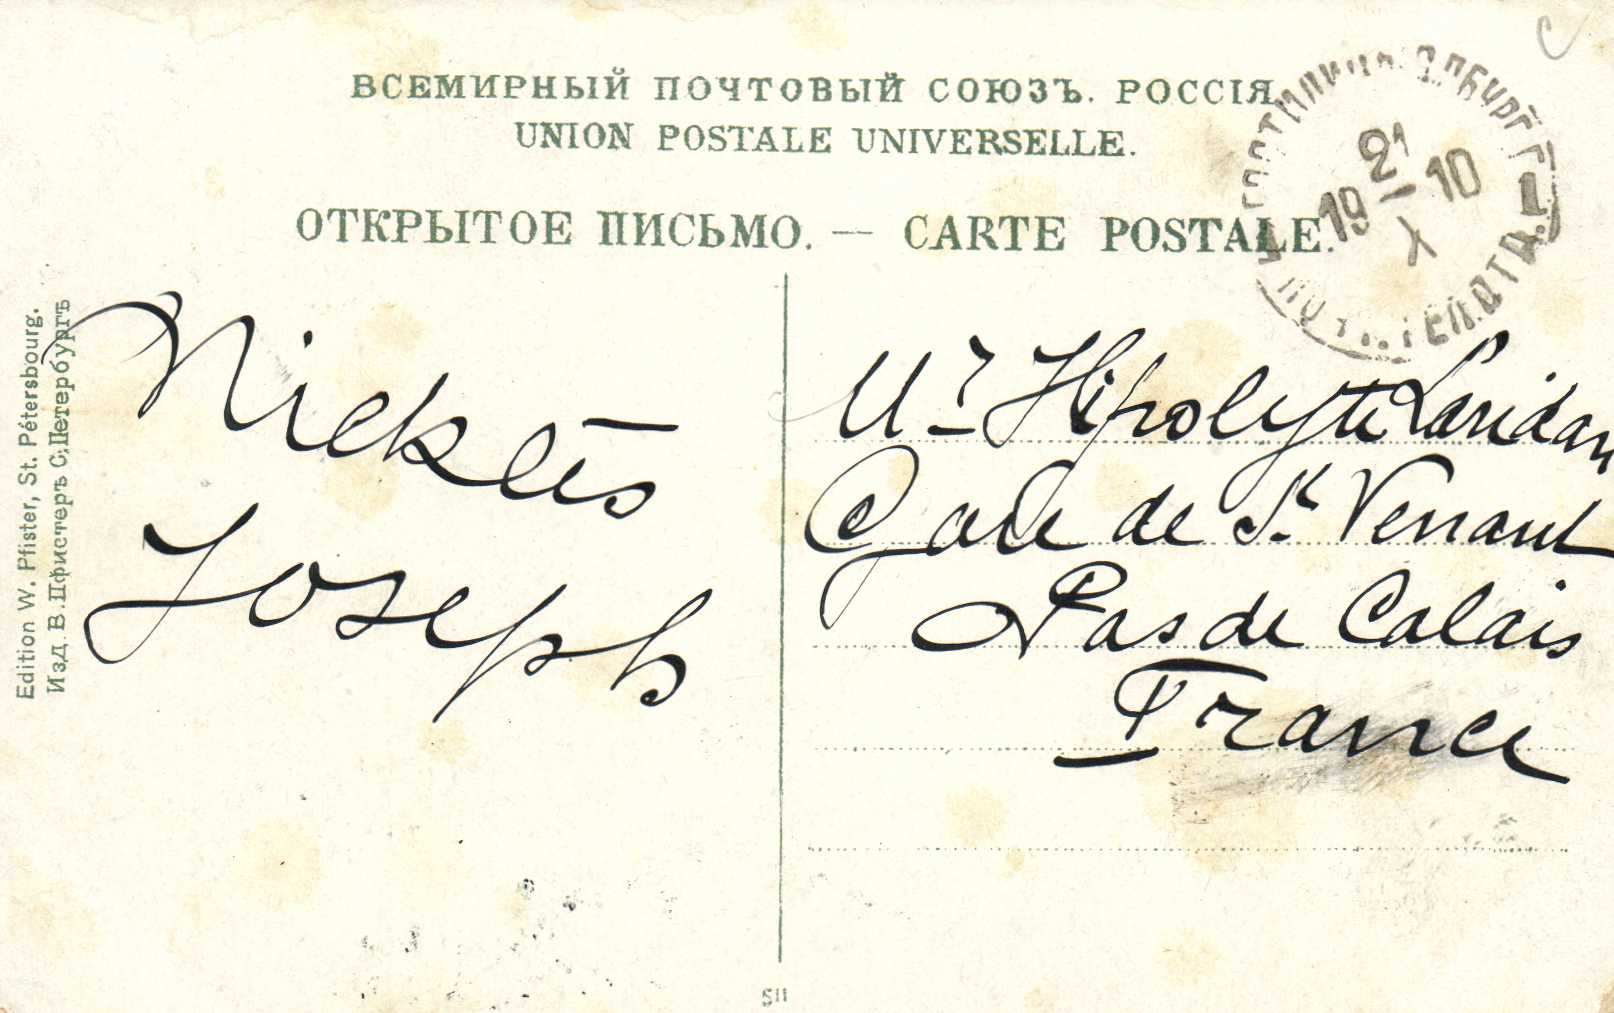 ВСЕМИРНЫЙ ПОЧТОВЫЙ СОЮЗЪ. РОССІЯ
UNION POSTALE UNIVERSELLE.
ОТКРЫТОЕ ПИСЬМО. — CARTE POSTALE.
21
19 — 10
X
Edition W. Pfister, St. Pétersbourg.
Изд. В. Пфистеръ С. Петербургъ
Nickles
Joseph
Mr Hipolyte
Gare de St Venant
Pas de Calais
France
511